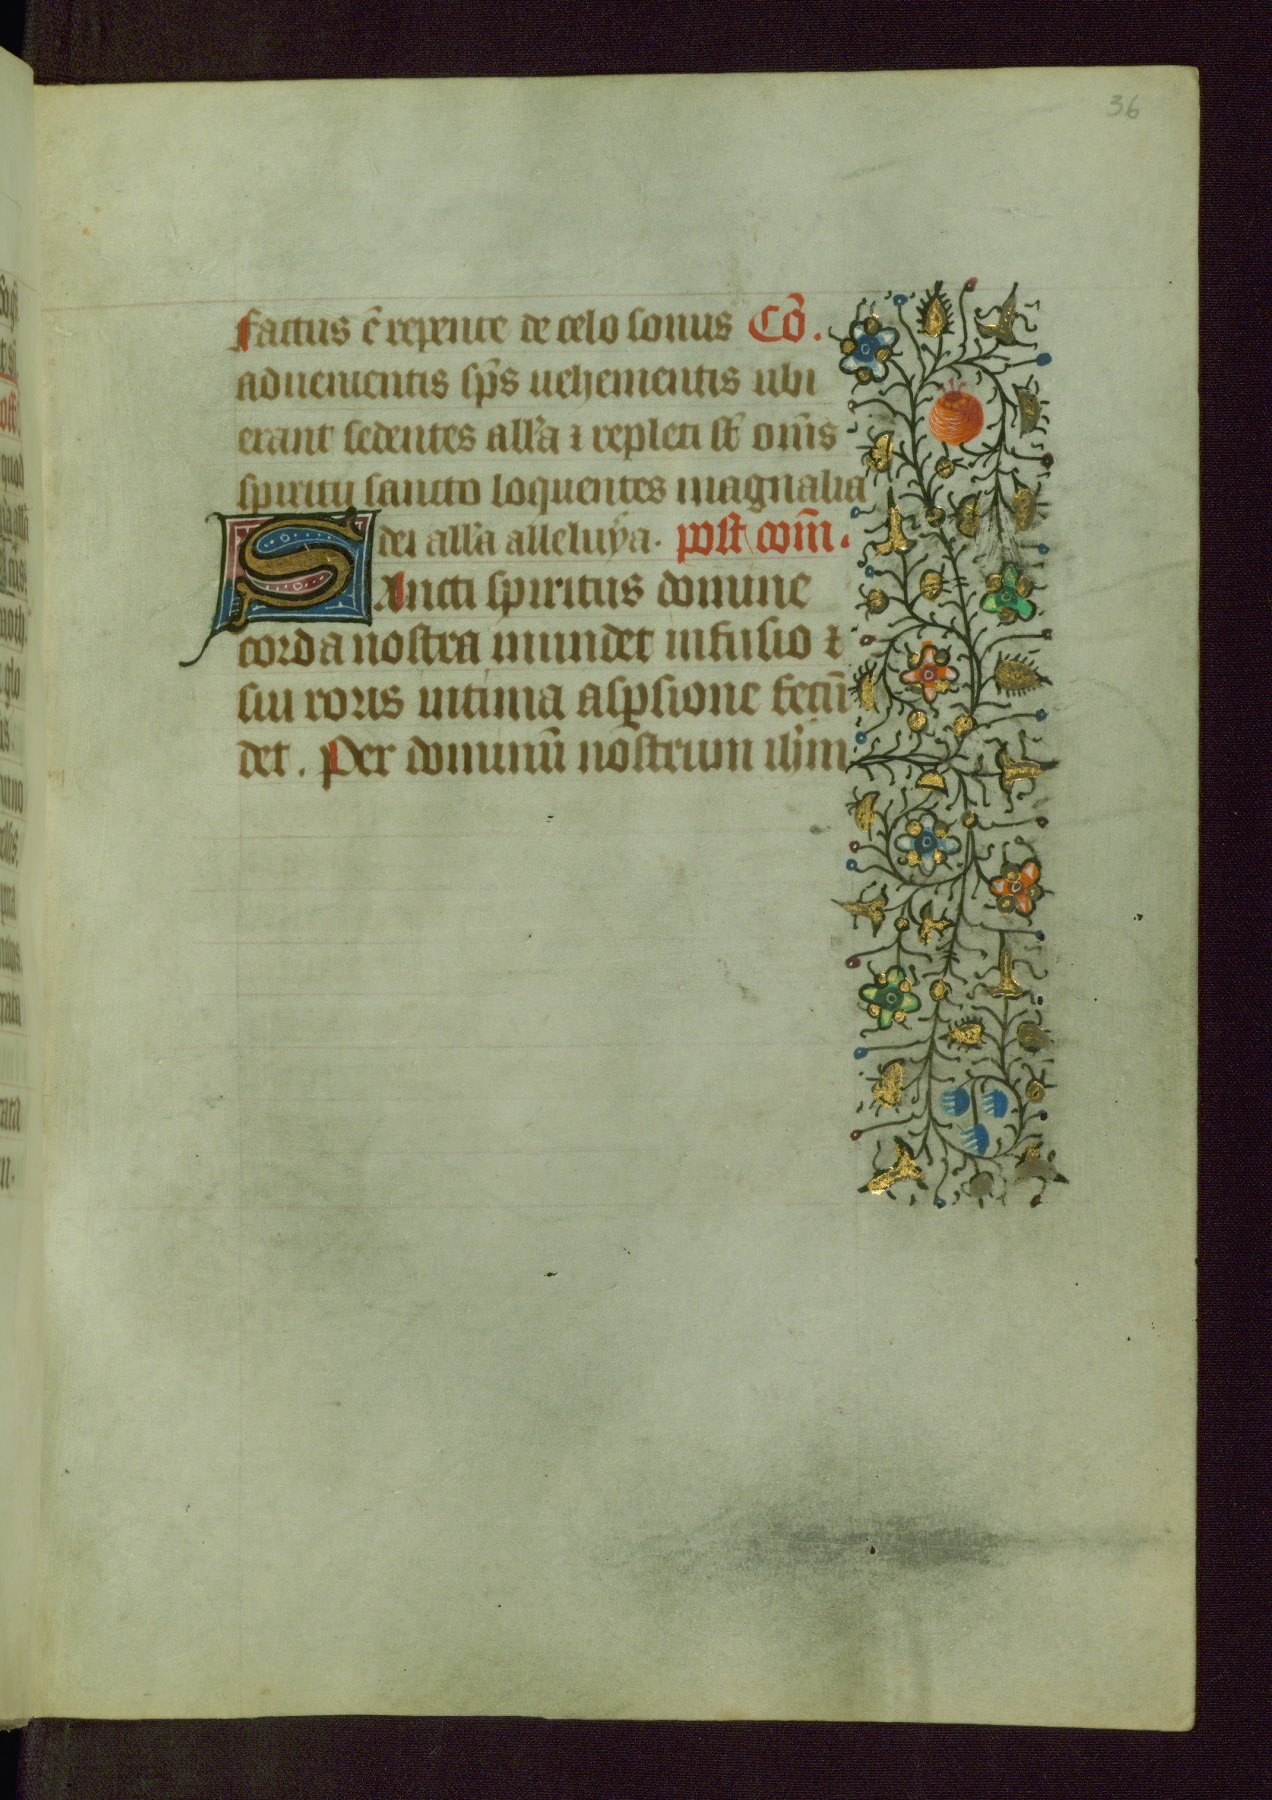 36
factus ē repente de celo sonus Cō.
aduenientis sp̄s uehementis ubi
erant sedentes all'a ⁊ repleti sт̄ om̄s
spiritu sancto loquentes magnalia
dei all'a alleluya. post com̄.
Sancti spiritus domine
corda nostra mundet infusio ⁊
sui roris intima aspsione fecū
det. Per dominū nostrum ihm